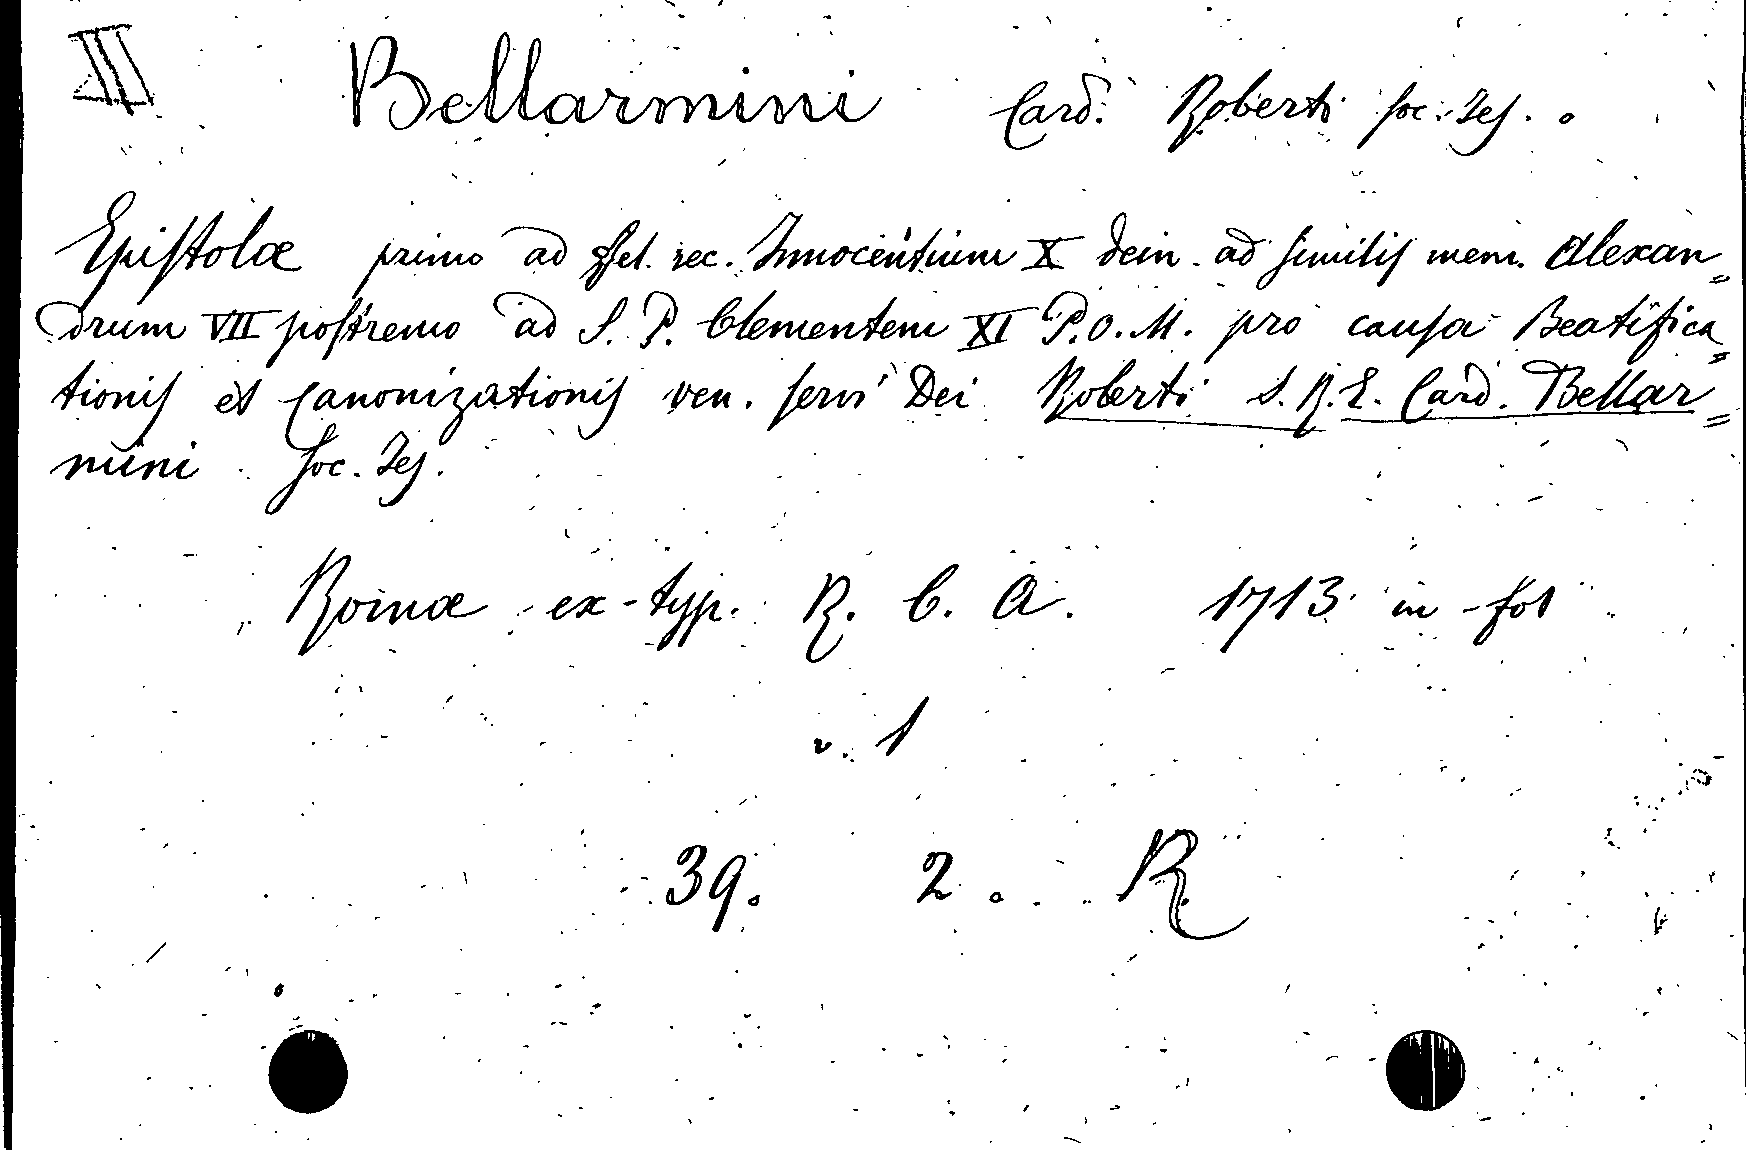 III Bellarmini Card. Roberti Soc. Jes.
Epistolæ primo ad fel. rec. Innocentium X dein ad similis mem. Alexan=
drum VII postremo ad S. P. Clementem XI P.O.M. pro causa Beatifica=
tionis et canonizationis ven. servi Dei Roberti S.R.E. Card. Bellar=
mini Soc. Jes.
Romæ ex-typ. R. C. A. 1713 in-fol
v. 1
39. 2. R.